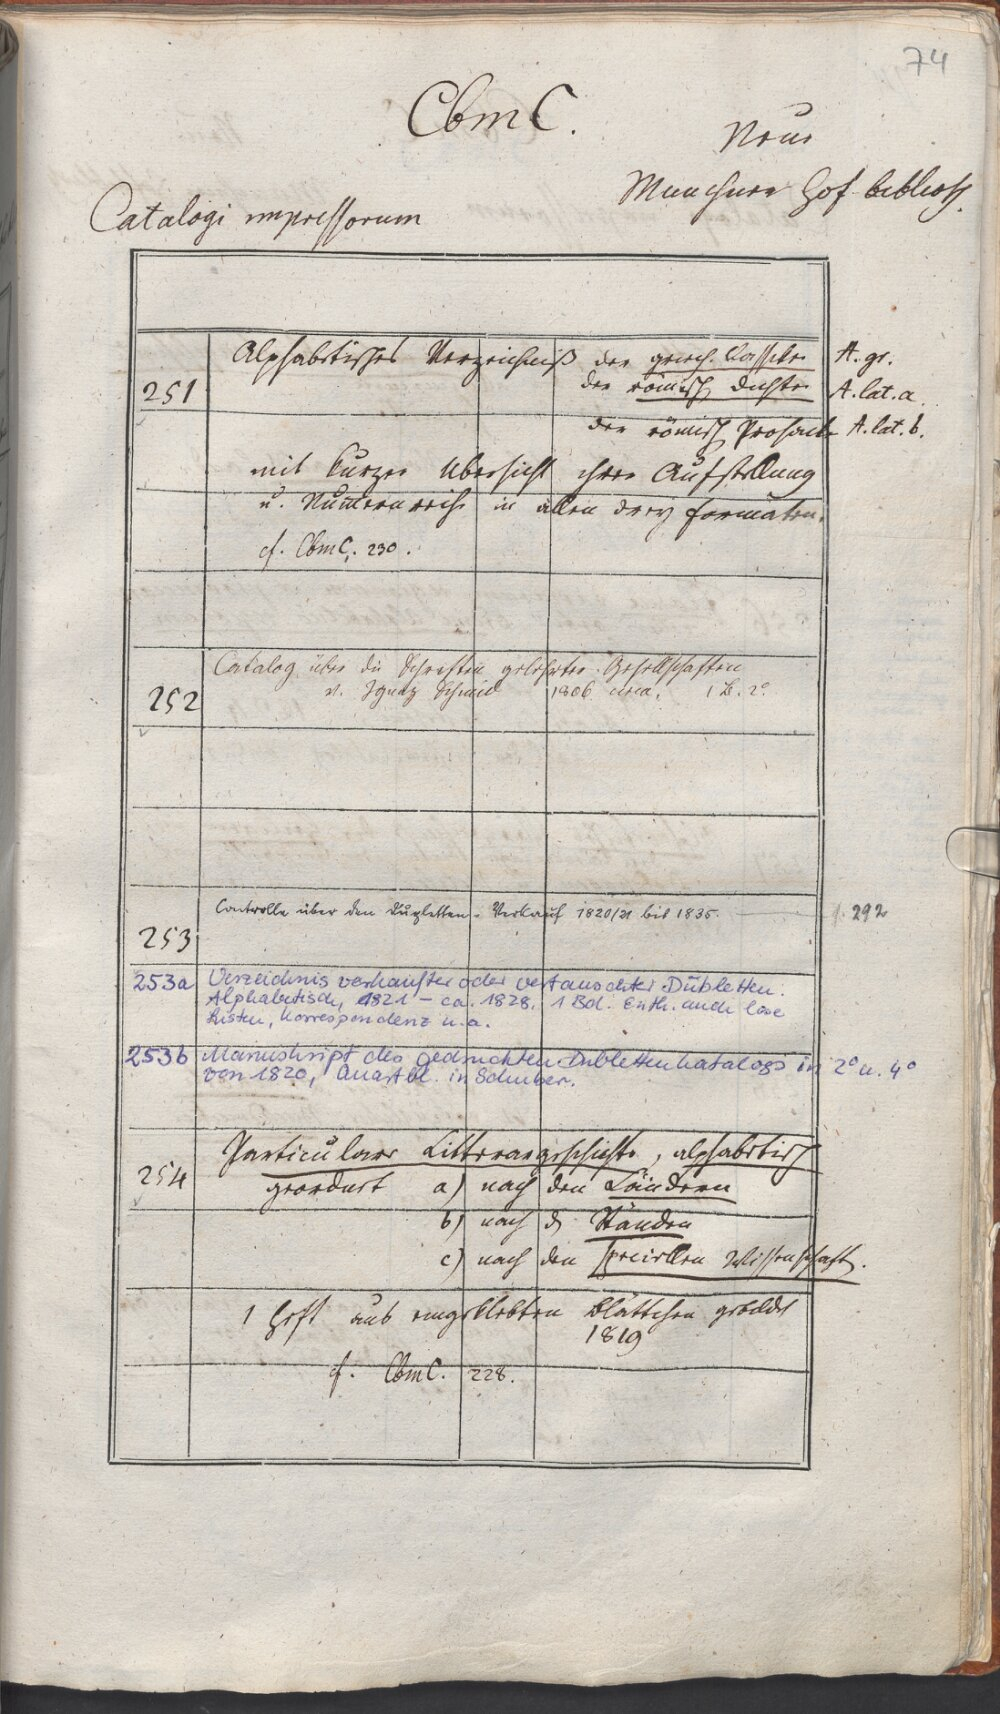 74
CbmC.
Neue
Münchner Hof-biblioth.
Catalogi impressorum
251
Alphabetisches Verzeichniß der griech. Classiker A. gr.
der römisch Dichter A. lat. a.
der römisch Prosaiker A. lat. b.
mit kurzer Übersicht ihrer Aufstellung
u. Numernreihe in allen drey Formaten.
cf. CbmC. 230.
252
Catalog über die Schriften gelehrter Gesellschaften
v. Ignaz Schmid 1806 circa. 1 B. 2°
253
Controlle über den Dupletten-Verkauf 1820/21 bis 1835. 292
253a Verzeichnis verkaufter oder vertauschter Dubletten.
Alphabetisch, 1821 – ca. 1828. 1 Bd. Enth. auch lose
Listen, Korrespondenz u. a.
253b Manuskript des gedruckten Dublettenkatalogs in 2° u. 4°
von 1820, Quartbl. in Schuber.
254
Particulare Litterargeschichte, alphabetisch
geordnet a) nach den Ländern
b) nach d Ständen
c) nach den speciellen Wissenschaft.
1 Heft aus eingeklebten Blättchen gebildet
1819
cf. CbmC. 228.